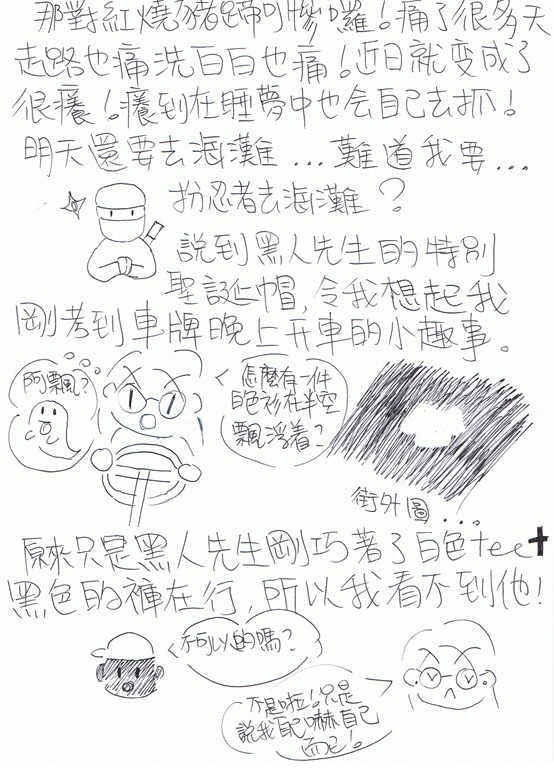 那對紅燒豬蹄可慘囉！痛了很多天
走路也痛洗白白也痛！近日就变成了
很癢！癢到在睡夢中也会自己去抓！
明天還要去海灘...難道我要...
扮忍者去海灘？
說到黑人先生的特別
聖誕帽，令我想起我
剛考到車牌晚上开車的小趣事。
阿飄？
怎麼有一件
白色衫在半空
飄浮着？
街外圖...
原來只是黑人先生剛巧著了白色tee+
黑色的褲在行，所以我看不到他！
不可以的嗎？
不是啦！只是
說我自己嚇自己
而已！